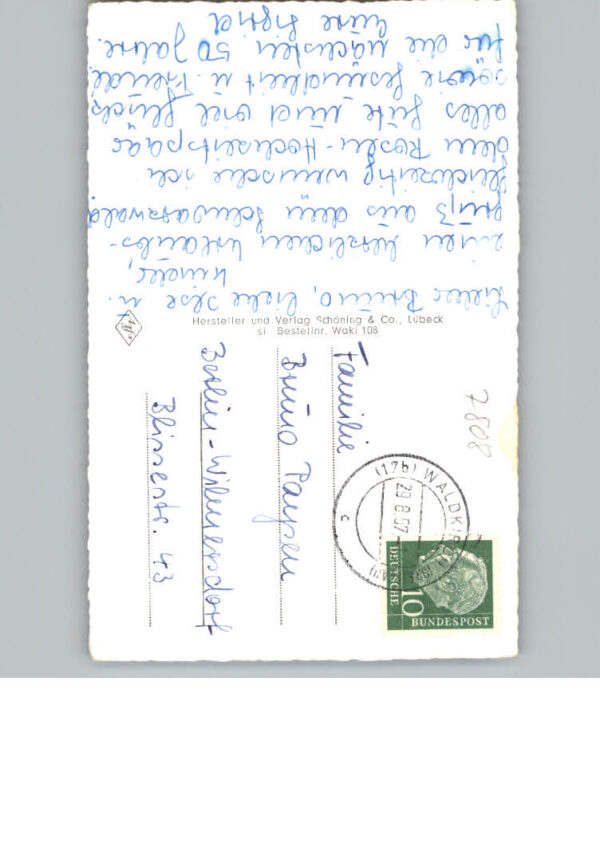 Lieber Bruno, liebe Ilse u.
Kinder,
einen herzlichen Urlaubs-
gruß aus dem Schwarzwald.
Gleichzeitig wünsche ich
dem Rosen-Hochzeitspaar
alles Gute und viel Glück
sowie Gesundheit u. Freude
für die nächsten 50 Jahre.
Eure Sigrid
Hersteller und Verlag Schöning & Co., Lübeck
si Bestellnr. Waki 108
7808
(17b) WALDKIRCH
29.8.57
c
DEUTSCHE
BUNDESPOST
10
Familie
Bruno
Berlin-Wilmersdorf
Blissestr. 43